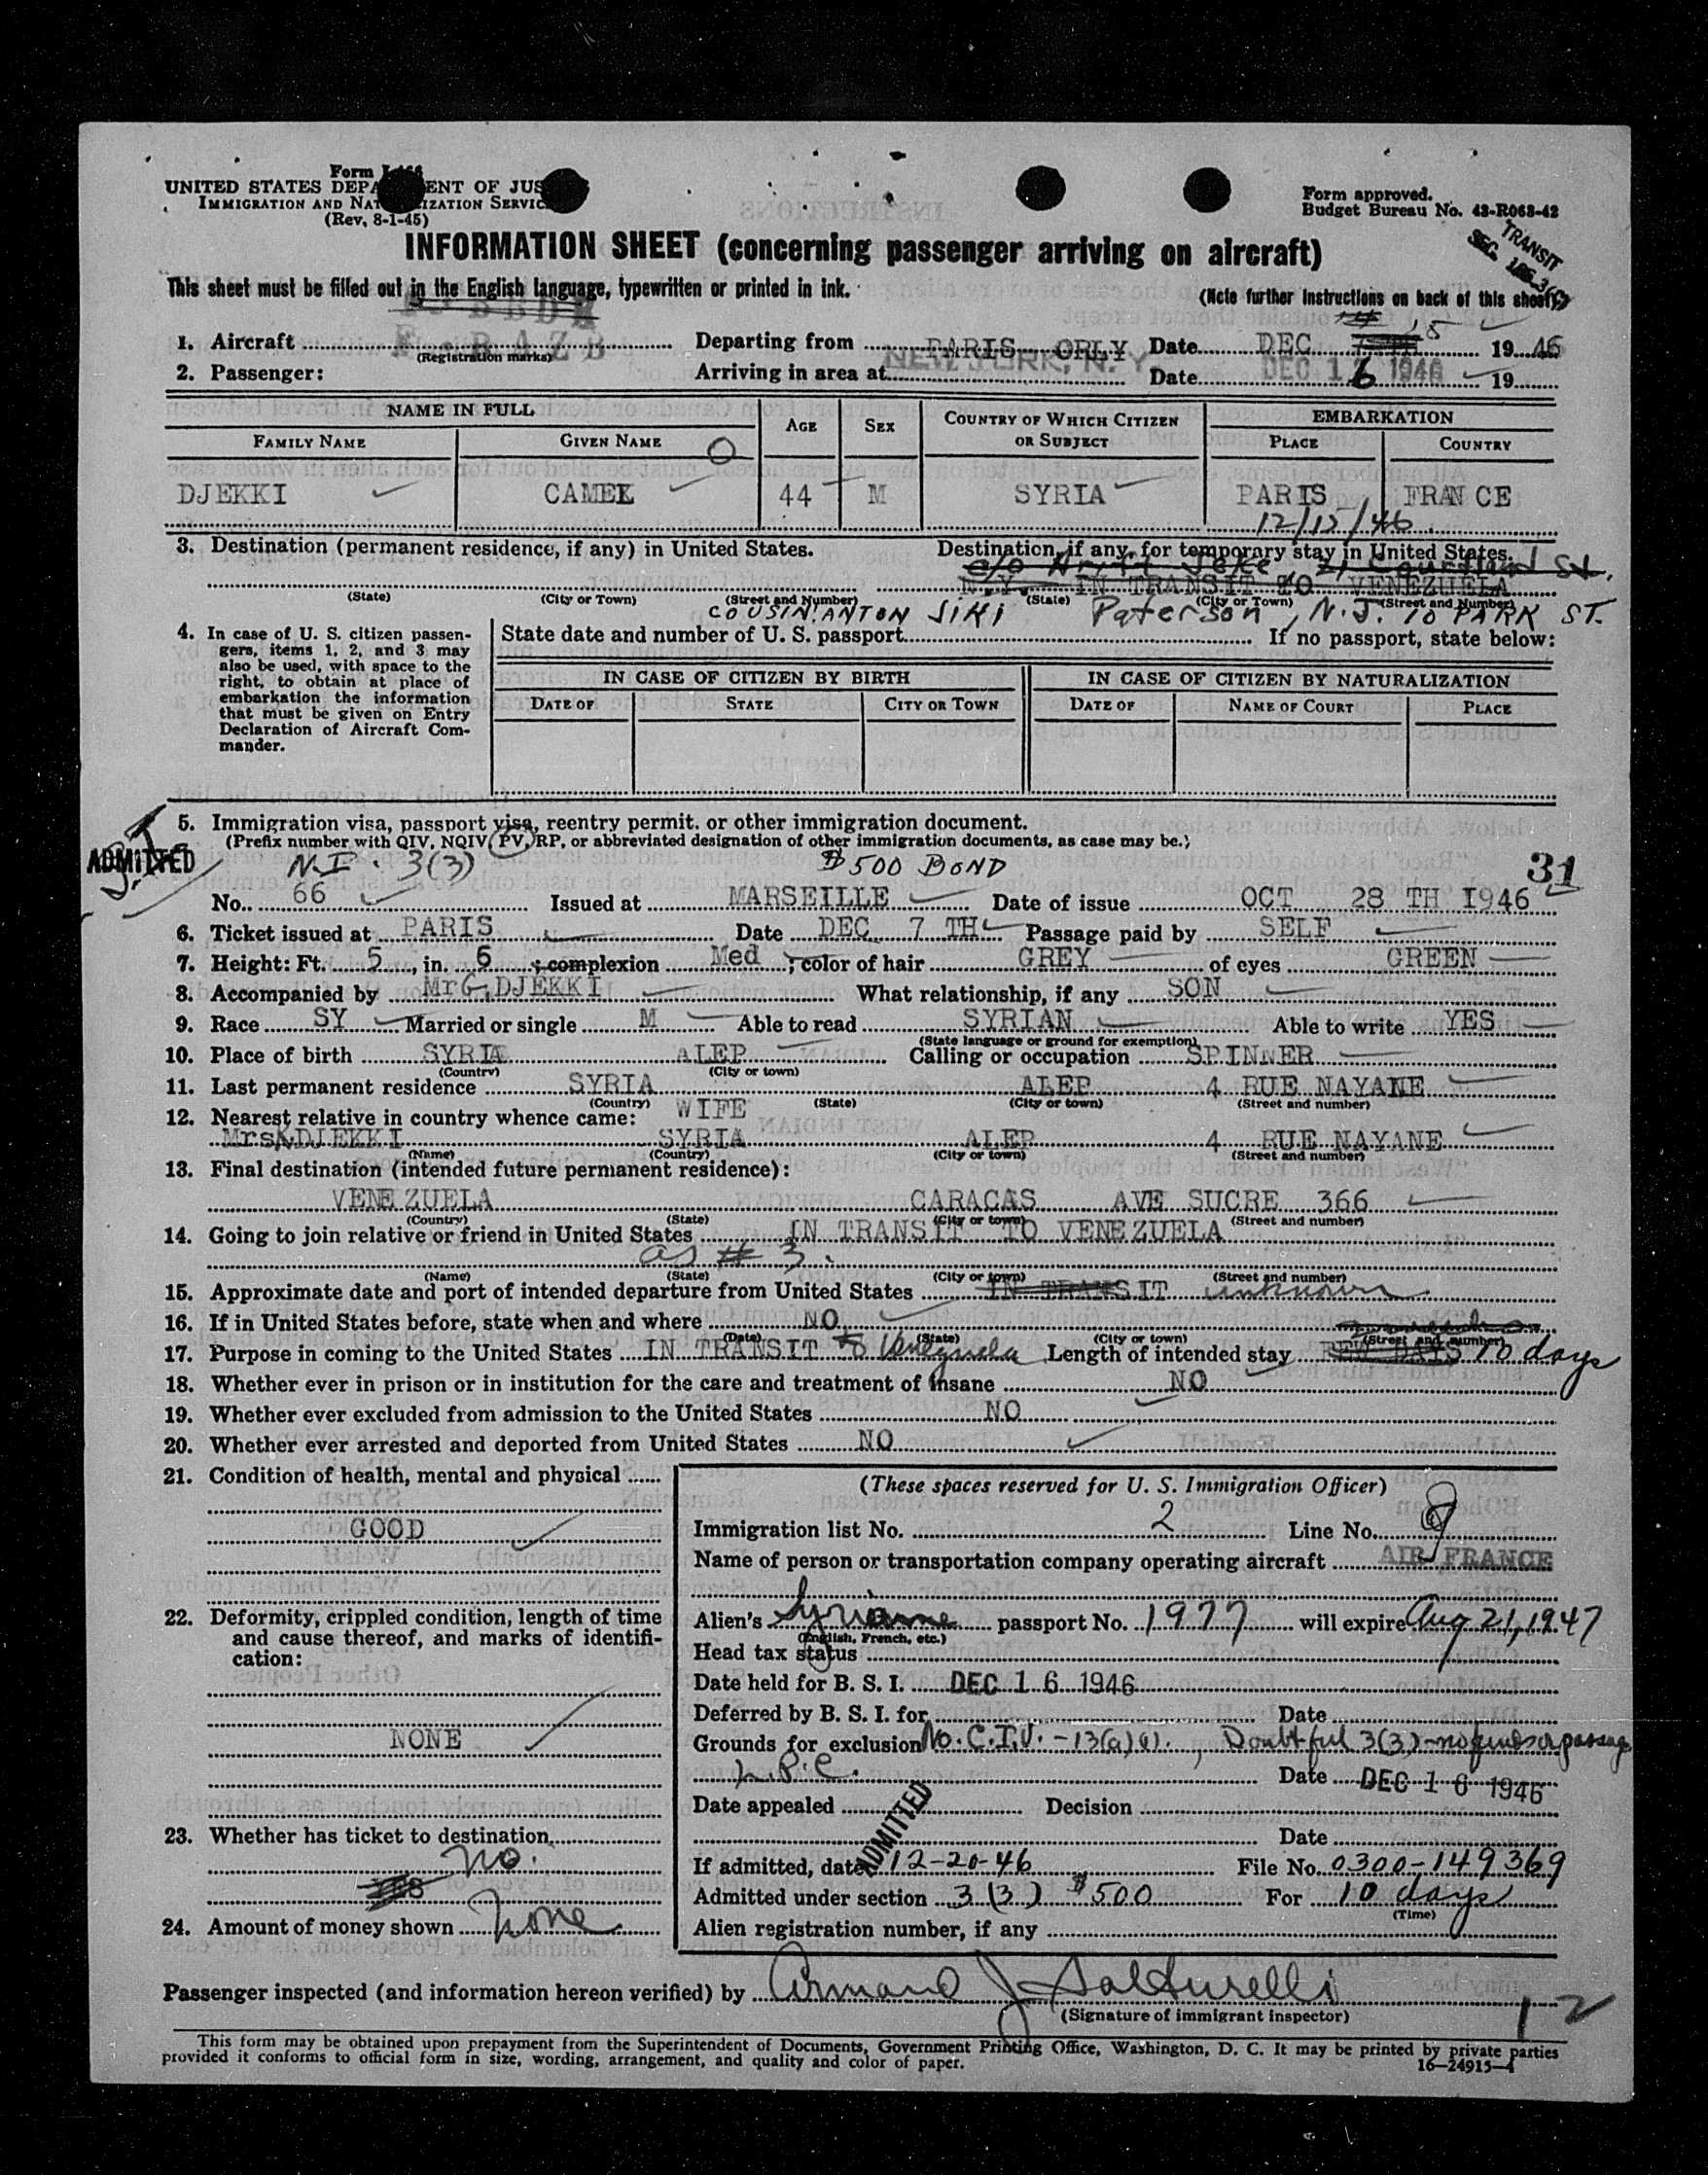 Form I-466
UNITED STATES DEPARTMENT OF JUSTICE
IMMIGRATION AND NATURALIZATION SERVICE
(Rev. 8-1-45)
Form approved.
Budget Bureau No. 43-R063-42
TRANSIT
SEC.
INFORMATION SHEET (concerning passenger arriving on aircraft)
This sheet must be filled out in the English language, typewritten or printed in ink.
(Note further instructions on back of this sheet)
1. Aircraft F-BAZB Departing from PARIS ORLY Date DEC 15 1946
(Registration marks)
2. Passenger: Arriving in area at NEW YORK, N.Y. Date DEC 16 1946 19
NAME IN FULL AGE SEX COUNTRY OF WHICH CITIZEN OR SUBJECT EMBARKATION
FAMILY NAME GIVEN NAME PLACE COUNTRY
DJEKKI CAMEL 44 M SYRIA PARIS FRANCE
12/15/46
3. Destination (permanent residence, if any) in United States. Destination, if any, for temporary stay in United States.
N.Y. IN TRANSIT TO VENEZUELA
(State) (City or Town) (Street and Number) (State) (City or Town) (Street and Number)
COUSIN ANTON SIKI Paterson, N.J. 10 PARK ST.
4. In case of U. S. citizen passengers, items 1, 2, and 3 may also be used, with space to the right, to obtain at place of embarkation the information that must be given on Entry Declaration of Aircraft Commander.
State date and number of U. S. passport If no passport, state below:
IN CASE OF CITIZEN BY BIRTH IN CASE OF CITIZEN BY NATURALIZATION
DATE OF STATE CITY OR TOWN DATE OF NAME OF COURT PLACE
5. Immigration visa, passport visa, reentry permit. or other immigration document.
(Prefix number with QIV, NQIV, PV, RP, or abbreviated designation of other immigration documents, as case may be.)
ADMITTED
N.I. 3(3) $500 BOND 31
No. 66 Issued at MARSEILLE Date of issue OCT 28 TH 1946
6. Ticket issued at PARIS Date DEC 7 TH Passage paid by SELF
7. Height: Ft. 5, in. 6; complexion Med; color of hair GREY of eyes GREEN
8. Accompanied by Mr G, DJEKKI What relationship, if any SON
9. Race SY Married or single M Able to read SYRIAN Able to write YES
(State language or ground for exemption)
10. Place of birth SYRIA ALEP Calling or occupation SPINNER
(Country) (City or town)
11. Last permanent residence SYRIA ALEP 4 RUE NAYANE
(Country) (State) (City or town) (Street and number)
12. Nearest relative in country whence came: WIFE
Mrs K DJEKKI SYRIA ALEP 4 RUE NAYANE
(Name) (Country) (City or town) (Street and number)
13. Final destination (intended future permanent residence):
VENEZUELA CARACAS AVE SUCRE 366
(Country) (State) (City or town) (Street and number)
14. Going to join relative or friend in United States IN TRANSIT TO VENEZUELA
as # 3.
(Name) (State) (City or town) (Street and number)
15. Approximate date and port of intended departure from United States IN TRANSIT unknown
16. If in United States before, state when and where NO
(Date) (State) (City or town) (Street and number)
17. Purpose in coming to the United States IN TRANSIT to Venezuela Length of intended stay FEW DAYS 10 days
18. Whether ever in prison or in institution for the care and treatment of insane NO
19. Whether ever excluded from admission to the United States NO
20. Whether ever arrested and deported from United States NO
21. Condition of health, mental and physical
GOOD
22. Deformity, crippled condition, length of time and cause thereof, and marks of identification:
NONE
23. Whether has ticket to destination
No.
YES
24. Amount of money shown None
(These spaces reserved for U. S. Immigration Officer)
Immigration list No. 2 Line No. 8
Name of person or transportation company operating aircraft AIR FRANCE
Alien's Syrian passport No. 1977 will expire Aug 21, 1947
(English, French, etc.)
Head tax status
Date held for B. S. I. DEC 16 1946
Deferred by B. S. I. for Date
Grounds for exclusion No. C.I.V. - 13(a)(1). , Doubtful 3(3) - no funds or passage
L.P.C. Date DEC 16 1946
Date appealed Decision
ADMITTED
Date
If admitted, date 12-20-46 File No. 0300-149369
Admitted under section 3(3) $500 For 10 days
(Time)
Alien registration number, if any
Passenger inspected (and information hereon verified) by Armand J Salturelli
(Signature of immigrant inspector)
12
This form may be obtained upon prepayment from the Superintendent of Documents, Government Printing Office, Washington, D. C. It may be printed by private parties
provided it conforms to official form in size, wording, arrangement, and quality and color of paper. 16—24915-4